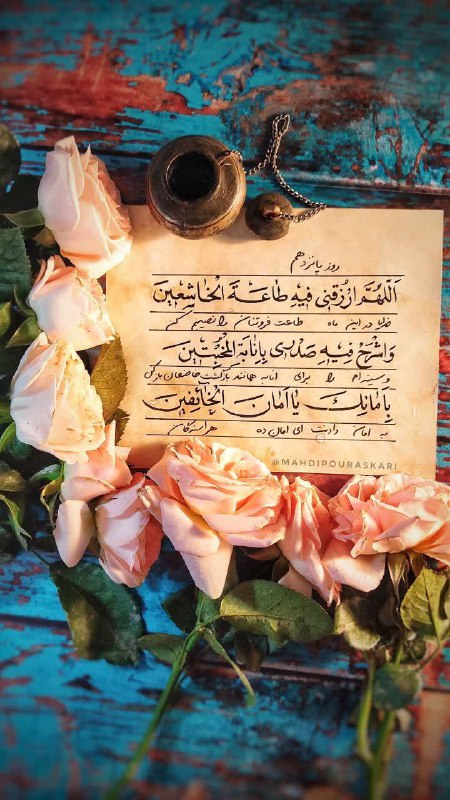 روز پانزدهم
اَللّهُمَّ ارْزُقْنی فیهِ طاعَةَ الْخاشِعینَ
خدایا در این ماه طاعت فروتنان را نصیبم کن
وَاشْرَحْ فیهِ صَدْری بِاِنابَةِ الْمُخْبِتینَ
و سینه‌ام را برای انابه همانند بازگشت خاضعان باز کن
بِاَمانِکَ یا اَمانَ الْخائِفینَ
به امان دادنت ای امان ده هراسناکان
@MAHDIPOURASKARI